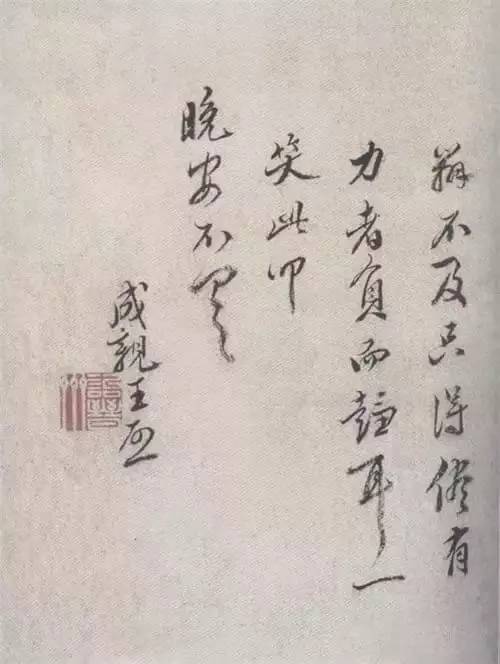 辦不及只得俟有
力者負而趨耳一
笑此叩
晚安不具
成親王